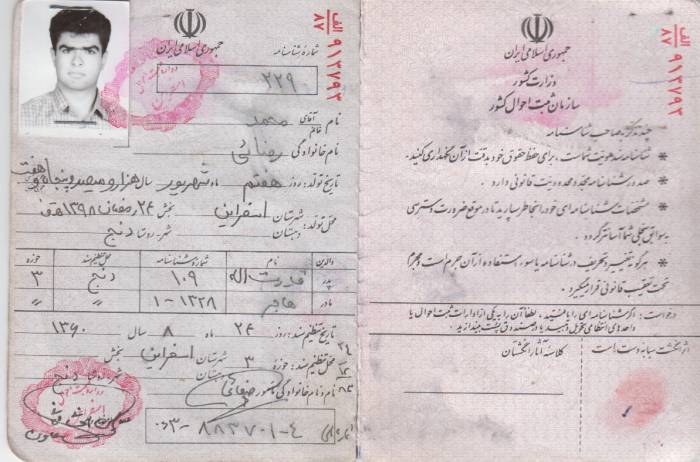 الف
۸۷
۹۱۳۷۹۳
جمهوری اسلامی ایران
شماره شناسنامه
۲۲۹
نام آقای خانم محمد
نام خانوادگی رضائی
تاریخ تولد: روز هفتم ماه شهریور سال هزار و سیصد و پنجاه و هفت
بخش ۲۴ رمضان ۱۳۹۸ قمری
محل تولد: شهرستان اسفراین
دهستان شهر-روستا دنج
والدین نام شماره شناسنامه محل تنظیم سند حوزه
پدر قدرت اله ۱۰۹ دنج ۳
مادر هاجر ۱-۱۳۲۸ 〃 〃
تاریخ تنظیم سند: روز ۲۴ ماه ۸ سال ۱۳۶۰
محل تنظیم سند: حوزه ۳ شهرستان اسفراین بخش
دهستان دنج
نام و نام خانوادگی
۸۸۳۷۰۱-۴
الف
۸۷
۹۱۳۷۹۳
جمهوری اسلامی ایران
وزارت کشور
سازمان ثبت احوال کشور
چند تذکر به صاحب شناسنامه
* شناسنامه سند هویت شماست. برای حفظ حقوق خود بدقت از آن نگهداری کنید.
* صدور شناسنامه مجدد محدودیت قانونی دارد.
* مشخصات شناسنامه‌ای خود را بخاطر بسپارید تا در موقع ضرورت دسترسی
به سوابق سجلی شما آسانتر گردد.
* هرگونه تغییر و تحریف در شناسنامه یا سوء استفاده از آن جرم است و مجرم
تحت تعقیب قانونی قرار میگیرد.
درخواست: اگر شناسنامه‌ای را یافتید، لطفا آن را به یکی از ادارات ثبت احوال یا
واحدهای انتظامی تحویل دهید یا در صندوق پست بیندازید.
اثر انگشت سبابه دست راست
کلاسه آثار انگشتان